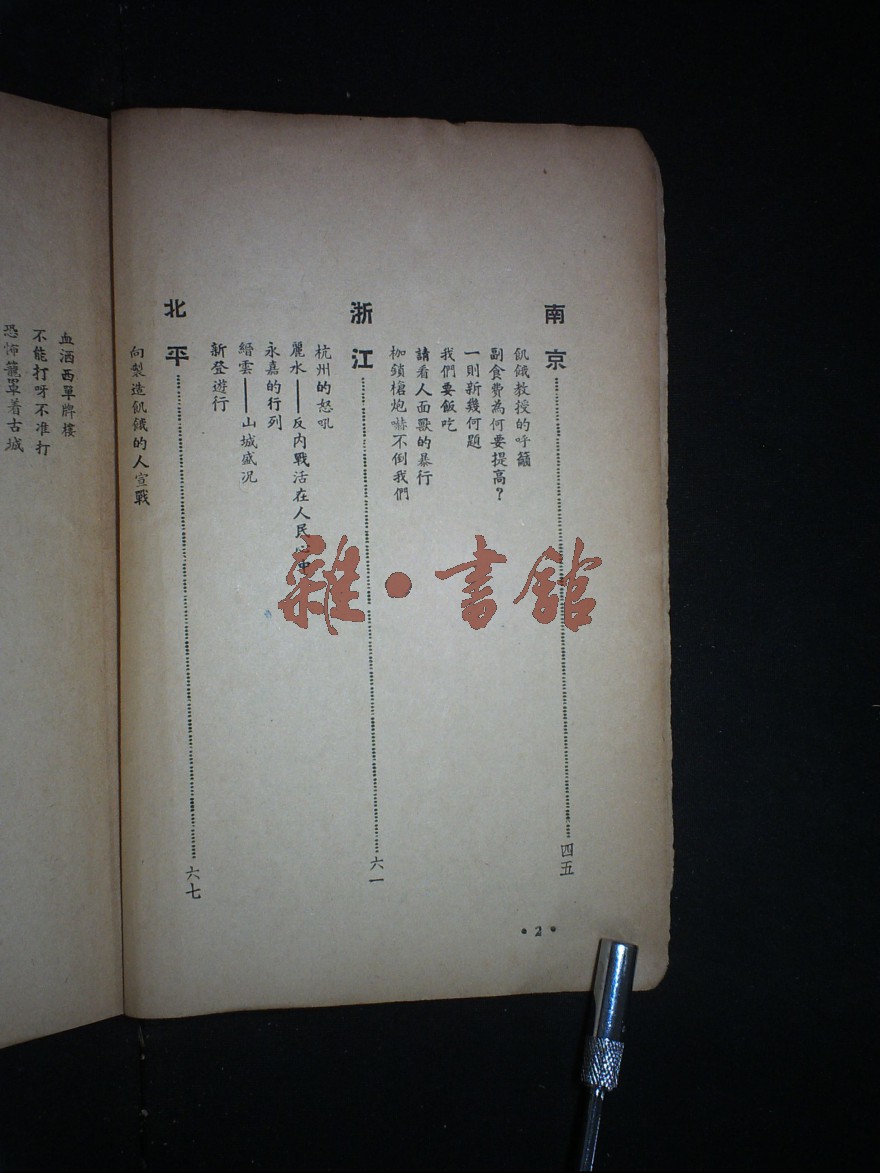 南京……四五
飢餓教授的呼籲
副食費為何要提高？
一則新幾何題
我們要飯吃
請看人面獸的暴行
枷鎖槍炮嚇不倒我們
浙江……六一
杭州的怒吼
麗水——反內戰活在人民心中
永嘉的行列
縉雲——山城盛况
新登遊行
北平……六七
向製造飢餓的人宣戰
血洒西單牌樓
不能打呀不准打
恐怖籠罩着古城
•2•
雜•書館